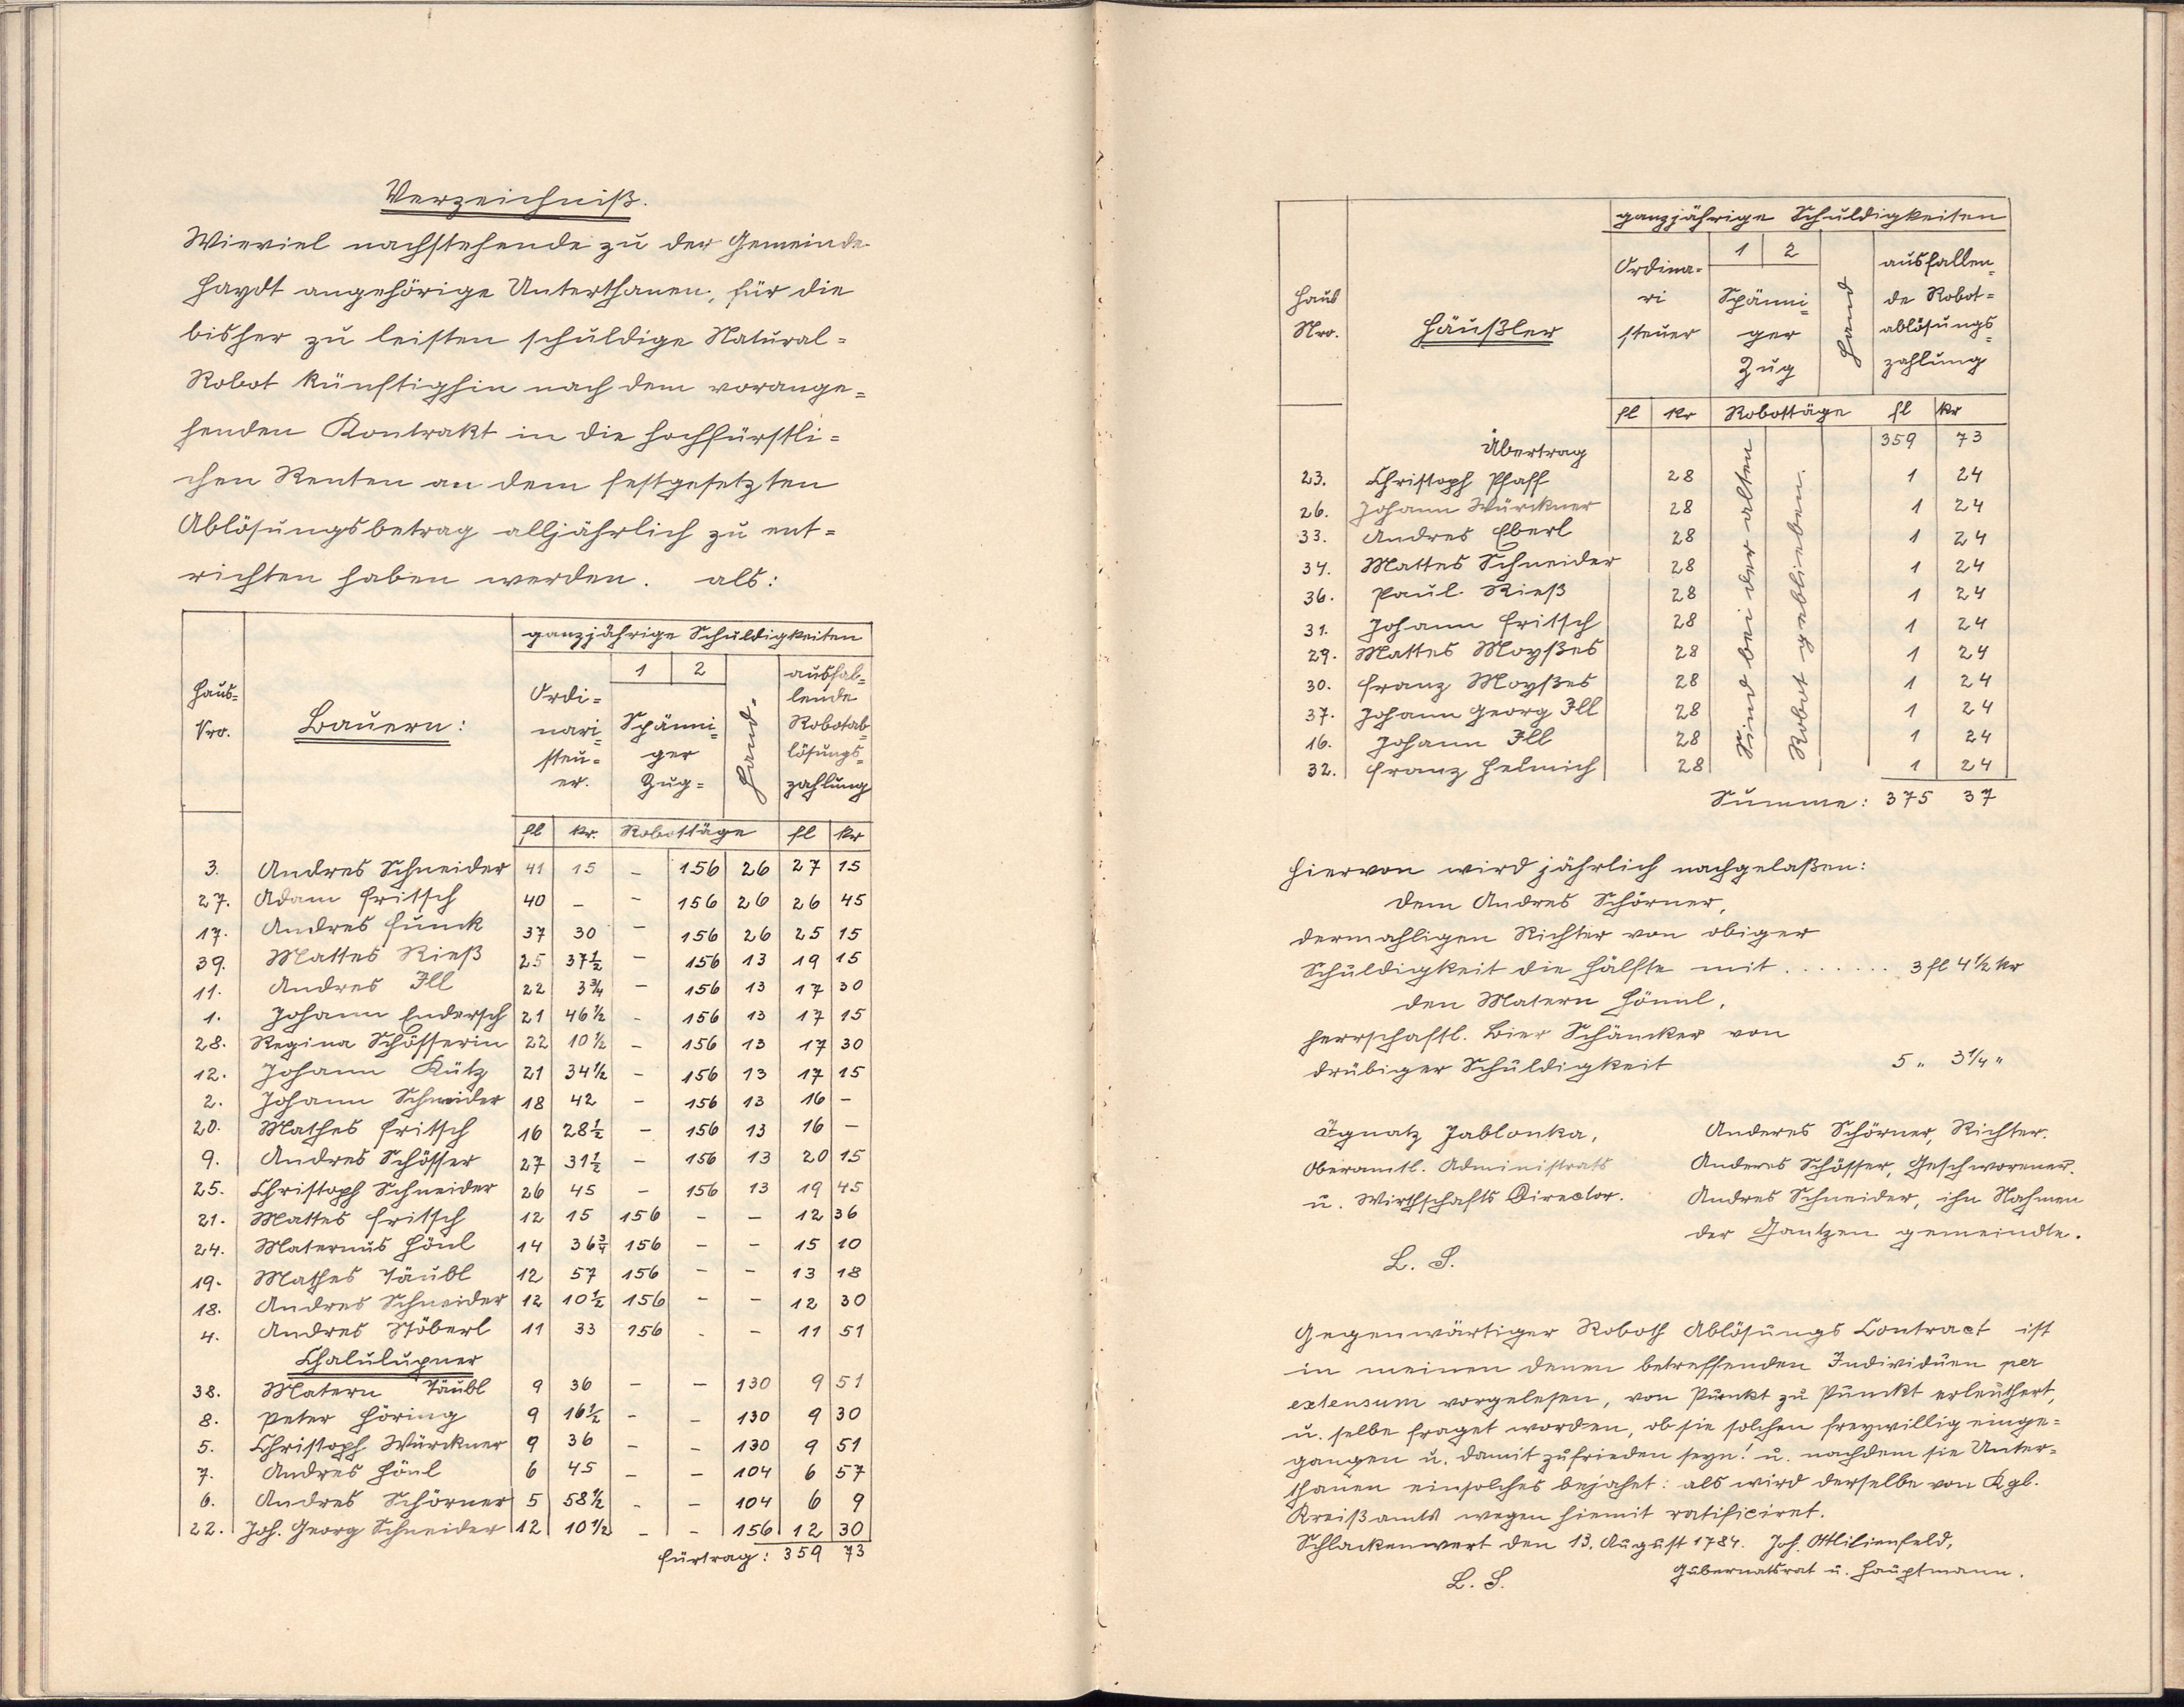 Verzeichniß.
Wieviel nachstehende zu der Gemeinde
Haydt angehörige Unterthanen, für die
bisher zu leisten schuldige Natural=
Robot künftighin nach dem vorange=
henden Kontrakt in die hochfürstli=
chen Renten an dem festgesetzten
Ablösungsbetrag alljährlich zu ent=
richten haben werden. als:
ganzjährige Schuldigkeiten
Haus= Nro.
Bauern:
Ordi= nari= steu= er.
1 2
Spänni= ger Zug=
Hand=
ausfal= lende Robotab= lösungs= zahlung
fl kr. Robottäge fl kr
3. Andres Schneider 41 15 – 156 26 27 15
27. Adam Fritsch 40 – – 156 26 26 45
17. Andres Funck 37 30 – 156 26 25 15
39. Mattes Rieß 25 37½ – 156 13 19 15
11. Andres Ill 22 3¾ – 156 13 17 30
1. Johann Endersch 21 46½ – 156 13 17 15
28. Regina Schösserin 22 10½ – 156 13 17 30
12. Johann Kütz 21 34½ – 156 13 17 15
2. Johann Schneider 18 42 – 156 13 16 –
20. Mathes Fritsch 16 28½ – 156 13 16 –
9. Andres Schösser 27 31½ – 156 13 20 15
25. Christoph Schneider 26 45 – 156 13 19 45
21. Mattes Fritsch 12 15 156 – – 12 36
24. Maternus Hönl 14 36¾ 156 – – 15 10
19. Mathes Täubl 12 57 156 – – 13 18
18. Andres Schneider 12 10½ 156 – – 12 30
4. Andres Stöberl 11 33 156 – – 11 51
Chalulupner
38. Matern Täubl 9 36 – – 130 9 51
8. Peter Höring 9 16½ – – 130 9 30
5. Christoph Würckner 9 36 – – 130 9 51
7. Andres Hönl 6 45 – – 104 6 57
6. Andres Schörner 5 58½ – – 104 6 9
22. Joh. Georg Schneider 12 10½ – – 156 12 30
Fürtrag: 359 73
ganzjährige Schuldigkeiten
Haus Nro.
Häußler
Ordina= ri steuer
1 2
Spänni= ger Zug
Hand
ausfallen= de Robot= ablösungs= zahlung
fl kr Robottäge fl kr
Übertrag 359 73
Sind bei der alten
Robot geblieben.
23. Christoph Pfaff 28 1 24
26. Johann Würckner 28 1 24
33. Andres Eberl 28 1 24
34. Mattes Schneider 28 1 24
36. Paul Rieß 28 1 24
31. Johann Fritsch 28 1 24
29. Mattes Moyßes 28 1 24
30. Franz Moyßes 28 1 24
37. Johann Georg Ill 28 1 24
16. Johann Ill 28 1 24
32. Franz Helmich 28 1 24
Summe: 375 37
Hiervon wird jährlich nachgelaßen:
dem Andres Schörner,
dermahligen Richter von obiger
Schuldigkeit die Hälfte mit ....... 3 fl 4½ kr
den Matern Hönnl,
herrschaftl. Bier Schäncker von
drübiger Schuldigkeit 5 " 3¼ "
Ignatz Jablonka,
Oberamtl. Administrats
u. Wirthschafts Director.
L. S.
Anderes Schörner, Richter.
Anderes Schösser, Geschworener.
Andres Schneider, ihn Nahmen
der Gantzen gemeindte.
Gegenwärtiger Roboth Ablösungs Contract ist
in meinen denen betreffenden Individuen per
extensum vorgelesen, von Punkt zu Punckt erleuthert,
u. selbe fraget worden, ob sie solchen freywillig einge=
gangen u. damit zufrieden seyn! u. nachdem sie Unter=
thanen einsolches bejahet: als wird derselbe von Kgl.
Kreißamts wegen hiemit ratificiret.
Schlackenwert den 13. August 1784. Joh. Ottlilienfeld,
Gubernatsrat u. Hauptmann.
L. S.